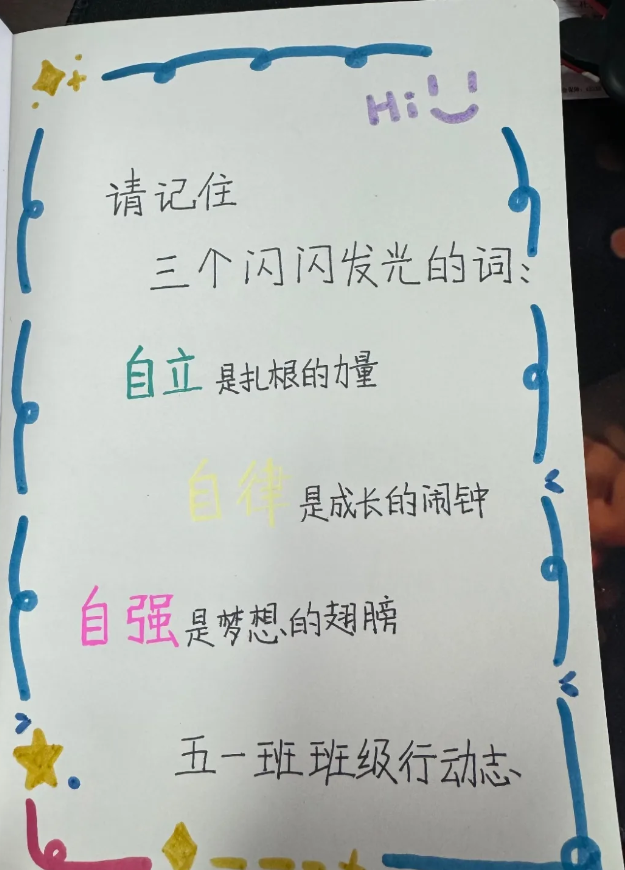 Hi
请记住
三个闪闪发光的词:
自立是扎根的力量
自律是成长的闹钟
自强是梦想的翅膀
五一班班级行动志